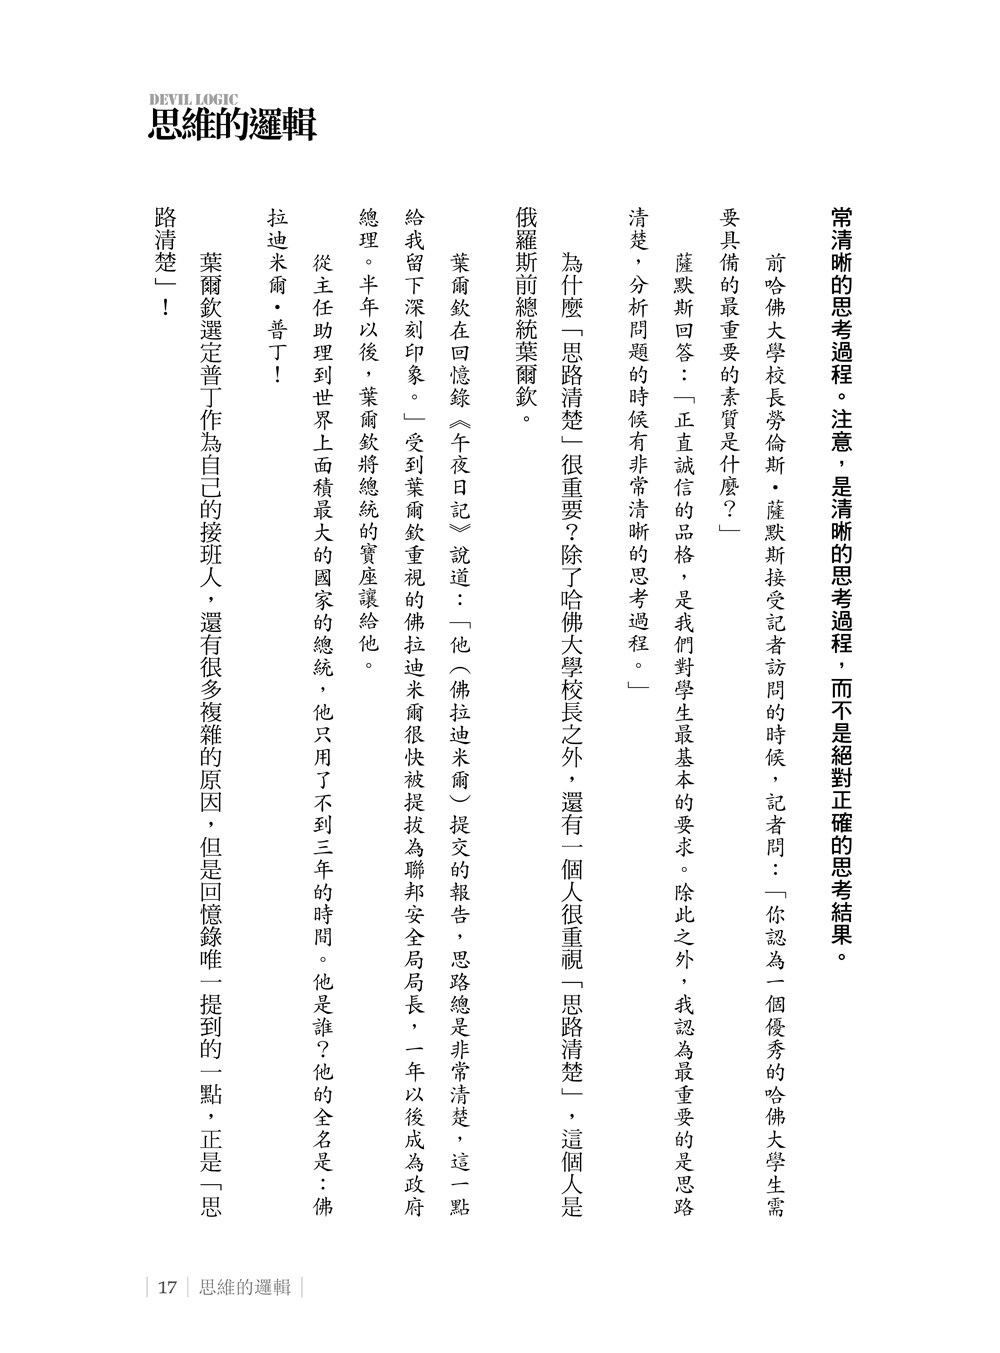 DEVIL LOGIC
思維的邏輯
常清晰的思考過程。注意，是清晰的思考過程，而不是絕對正確的思考結果。
前哈佛大學校長勞倫斯•薩默斯接受記者訪問的時候，記者問：「你認為一個優秀的哈佛大學生需
要具備的最重要的素質是什麼？」
薩默斯回答：「正直誠信的品格，是我們對學生最基本的要求。除此之外，我認為最重要的是思路
清楚，分析問題的時候有非常清晰的思考過程。」
為什麼「思路清楚」很重要？除了哈佛大學校長之外，還有一個人很重視「思路清楚」，這個人是
俄羅斯前總統葉爾欽。
葉爾欽在回憶錄《午夜日記》說道：「他（佛拉迪米爾）提交的報告，思路總是非常清楚，這一點
給我留下深刻印象。」受到葉爾欽重視的佛拉迪米爾很快被提拔為聯邦安全局局長，一年以後成為政府
總理。半年以後，葉爾欽將總統的寶座讓給他。
從主任助理到世界上面積最大的國家的總統，他只用了不到三年的時間。他是誰？他的全名是：佛
拉迪米爾•普丁！
葉爾欽選定普丁作為自己的接班人，還有很多複雜的原因，但是回憶錄唯一提到的一點，正是「思
路清楚」！
17 思維的邏輯